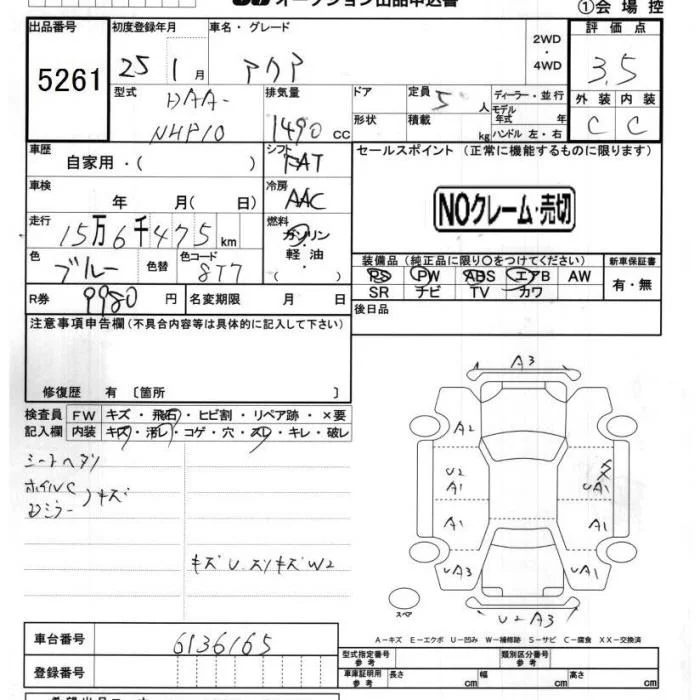 オークション出品申込書
①会場控
出品番号
5261
初度登録年月
25 1月
車名・グレード
アクア
2WD
・
4WD
評価点
3.5
外装 内装
C C
型式
DAA-
NHP10
排気量
1490cc
ドア
形状
定員 5人
積載 kg
ディーラー・並行
モデル
年式 年
ハンドル 左・右
車歴
自家用・( )
シフト
FAT
セールスポイント (正常に機能するものに限ります)
NOクレーム・売切
車検
年 月( 日)
冷房
AAC
走行
15万6千475km
燃料
ガソリン
・
軽油
・
( )
色
ブルー
色替
色コード
8T7
装備品(純正品に限り○をつけてください)
PS PW ABS エアB AW
SR ナビ TV カワ
新車保証書
有・無
R券 9980円
名変期限 月 日
後日品
注意事項申告欄(不具合内容等は具体的に記入して下さい)
修復歴 有〔箇所 〕
検査員
記入欄
FW キズ・飛石・ヒビ割・リペア跡・×要
内装 キズ・汚レ・コゲ・穴・スレ・キレ・破レ
シートヘタリ
ホイルC
ミラー
キズ
キズ U スリキズ W2
A3
A2
U2
A1
UA1
A1
A1
UA3
UA1
U2A3
スペア
A−キズ E−エクボ U−凹み W−補修跡 S−サビ C−腐食 XX−交換済
車台番号
6136165
登録番号
型式指定番号
参考
類別区分番号
参考
車庫証明用
参考
長さ cm
幅 cm
高さ cm